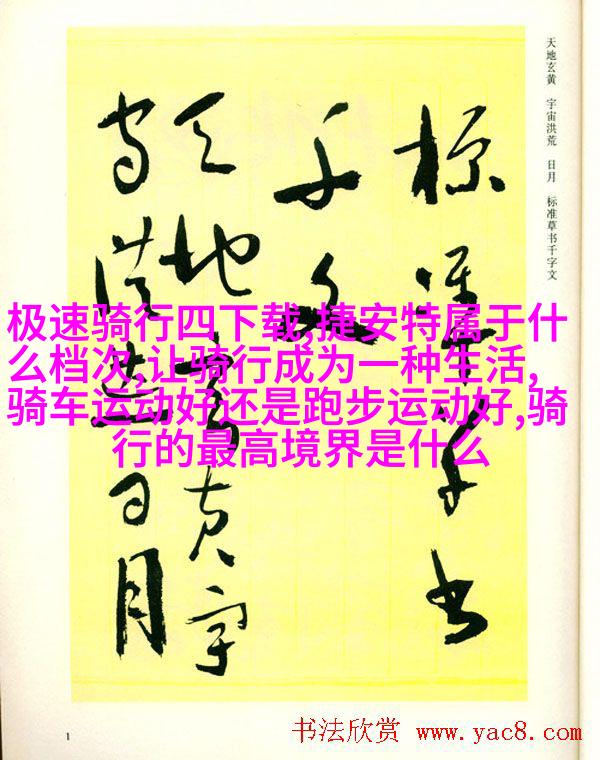 极速骑行四下载,捷安特属于什
么档次,让骑行成为一种生活,
骑车运动好还是跑步运动好,骑
行的最高境界是什么
天地玄黄 宇宙洪荒 日月 标准草书千字文
标准草书
千文
天地玄黄宇
宙洪荒日月
1
书法欣赏 www.yac8.com